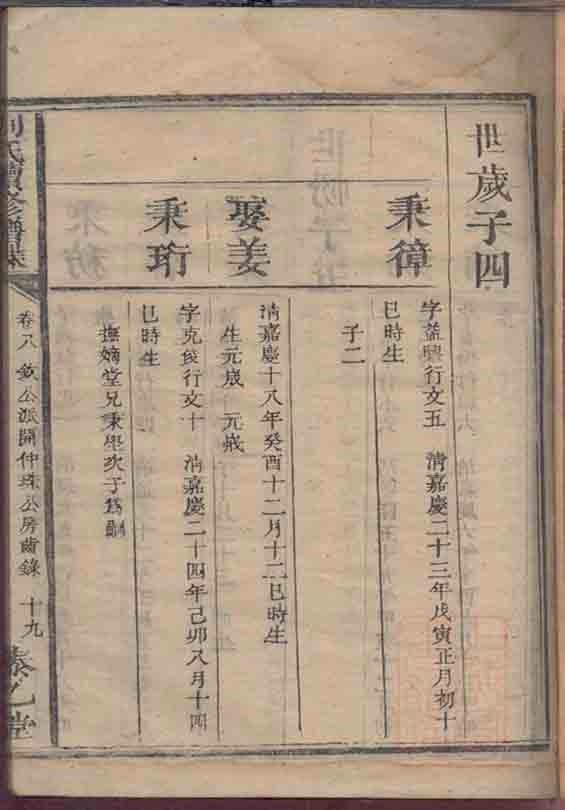 世歲子四
秉徫
字益興行文五 清嘉慶二十三年戊寅正月初十
巳時生
子二
娶姜
清嘉慶十八年癸酉十二月十二巳時生
生元歲 元戒
秉珩
字克俊行文十 清嘉慶二十四年己卯八月十四
巳時生
撫嫡堂兄秉壆次子爲嗣
氏續修譜
卷八 欽公派開仲珠公房齒錄 十九
乙堂